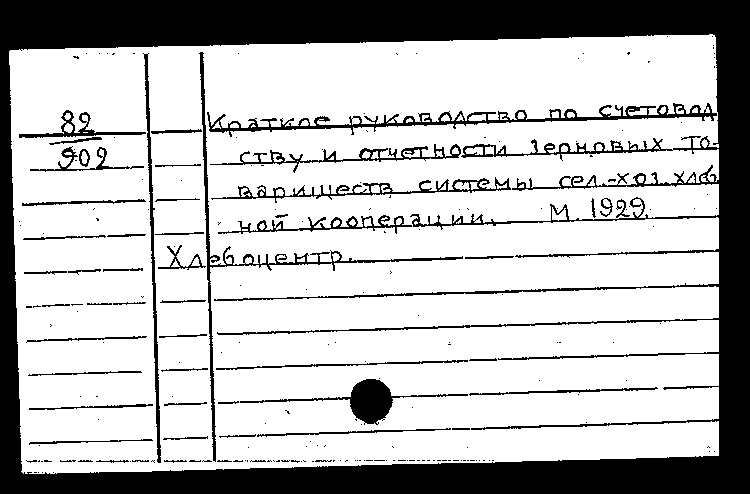 82
902
Краткое руководство по счетовод
ству и отчетности зерновых то-
вариществ системы сел.-хоз. хлеб
ной кооперации. М. 1929.
Хлебоцентр.